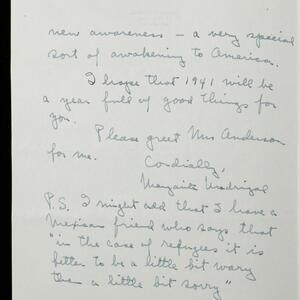 new awareness — a very special
sort of awakening to America.
I hope that 1941 will be
a year full of good things for
you.
Please greet Mrs Anderson
for me.
Cordially,
Margarita Madrigal
P.S. I might add that I have a
Mexican friend who says that
"in the case of refugees it is
better to be a little bit wary
than a little bit sorry"